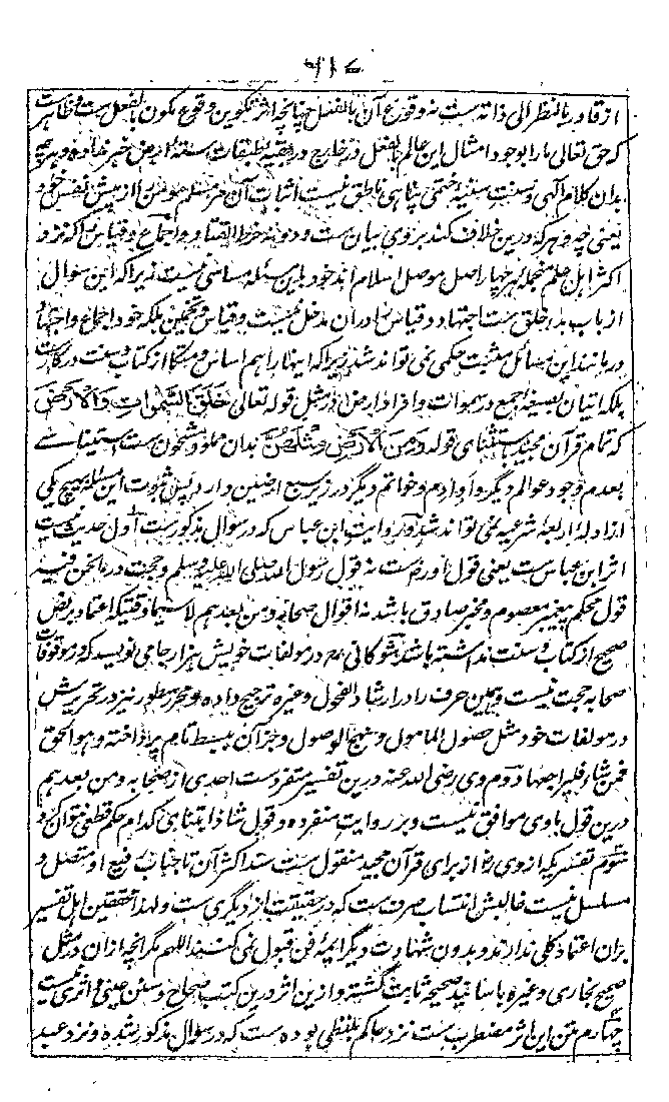 ۴۱۷
از قادر بالنظر الی ذاته ست نه وقوع آن بالفعل چنانچه اثر تکوین وقوع مکون بالفعل ست و ظاهر ست
که حق تعالی ما را بوجود امثال این عالم بالفعل در خارج در بقیه طبقات سته ارض خبر نداده و هرچه
بدان کلام الهی و سنت سنیه ختمی پناهی ناطق نیست اثبات آن هر مسلم مومن را از پیش نفس خود
یعنی چه و هر که درین خلاف کند بروی بیان ست و دونه خرط القتاد و اجماع و قیاس را که نزد
اکثر اهل علم منجمله هر چهار اصل موصل اسلام اند خود باین مسئله مساسی نیست زیرا که این سوال
از باب بدء خلق ست اجتهاد و قیاس را در آن مدخل نیست و قیاس و تخمین بلکه خود اجماع و اجتهاد
در مانند این مسائل مثبت حکمی نمی تواند شد زیرا که اینها را هم اساس و متکا از کتاب و سنت درکار ست
بلکه اتیان بصیغه جمع در سموات و افراد ارض در مثل قوله تعالی خَلَقَ السَّمٰواتِ وَالْاَرْضَ
که تمام قرآن مجید باستثنای قوله وَمِنَ الْاَرْضِ مِثْلَهُنَّ بدان مملو و مشحون ست استیناسے
بعدم وجود عوالم دیگر و اوادم و خواتم دیگر در زیر سبع ارضین دارد پس ثبوت این مسئله بهیچ یکی
از ادله اربعه شرعیه نمی تواند شد و روایت ابن عباس که در سوال مذکور ست اول حدیث نیست
اثر ابن عباس ست یعنی قول اوست نه قول رسول الله صلی الله علیه وسلم و حجت در ما نحن فیه
قول محکم پیغمبر معصوم و مخبر صادق باشد نه اقوال صحابه و من بعدهم لا سیما وقتیکه اعتماد بر نص
صحیح از کتاب و سنت نداشته باشد شوکانی رح در مولفات خویش هزار جا می نویسد که در موقوفات
صحابه حجت نیست و همین حرف را در ارشاد الفحول و غیره ترجیح داده و محرر سطور نیز در تحریرش
در مولفات خود مثل حصول المامول و منهج الوصول و جز آن ببسط تام پرداخته و هو الحق
فمن شاء فلیراجعها دوم وی رضی الله عنه درین تفسیر متفرد ست احدی از صحابه و من بعدهم
درین قول با وی موافق نیست و بر روایت منفرده و قول شاذ ابتنای کدام حکم قطعی نتوان کرد
سوم تفسیریکه از وی رض از برای قرآن مجید منقول ست سند اکثر آن تا جناب رفیع او متصل و
مسلسل نیست غالبش انتساب صرف ست که در حقیقت از دیگری ست و لهذا محققین اهل تفسیر
بران اعتماد کلی ندارند و بدون شهادت دیگر ایمه فن قبول نمی کنند اللهم مگر آنچه ازان در مثل
صحیح بخاری و غیره باسانید صحیحه ثابت گشته و ازین اثر درین کتب صحاح و سنن عینی و اثری نیست
چهارم متن این اثر مضطرب ست نزد حاکم بلفظی بوده ست که در سوال مذکور شده و نزد عبد